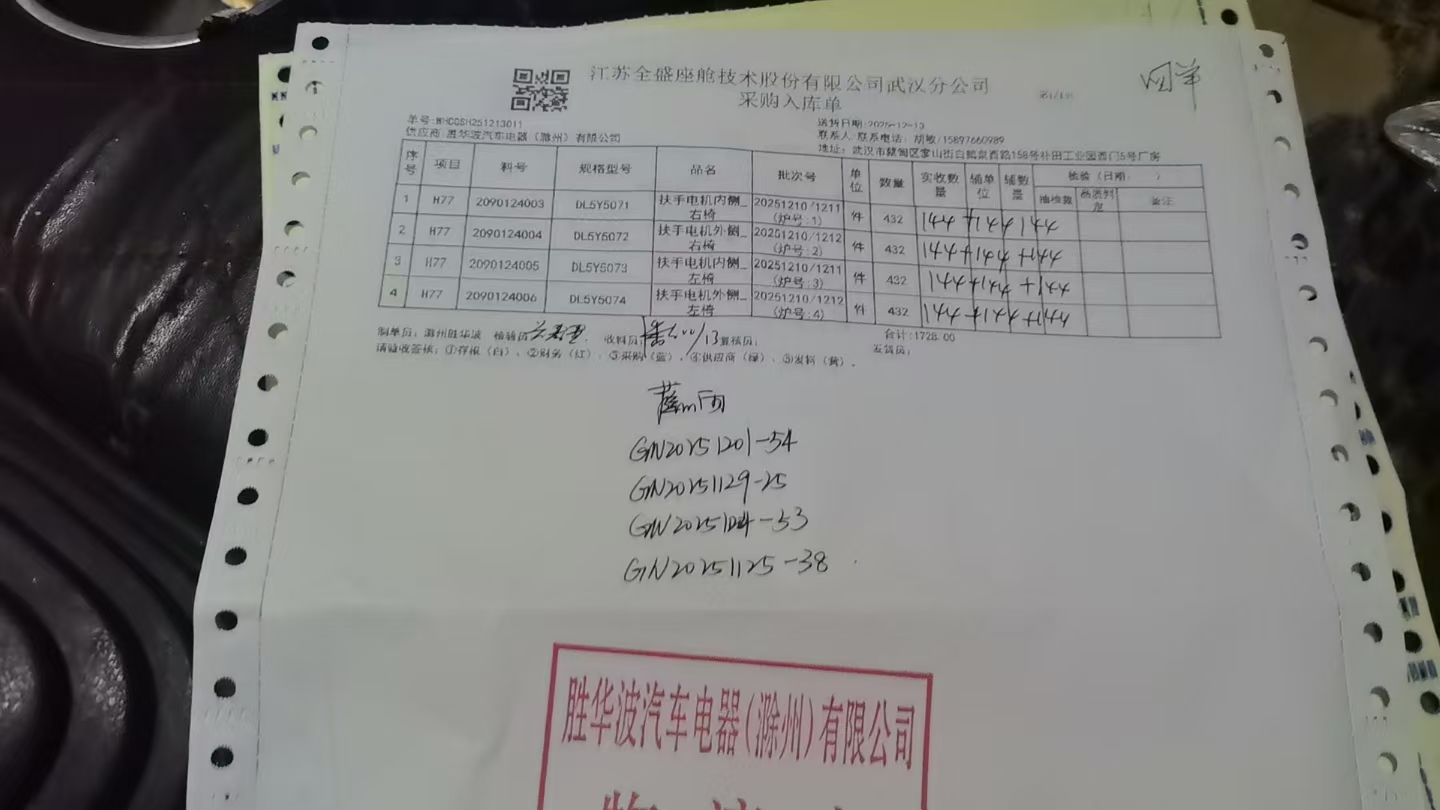 江苏全盛座舱技术股份有限公司武汉分公司
采购入库单
单号:WHQCSH251213011
送货日期:2025-12-13
供应商:胜华波汽车电器（滁州）有限公司
联系人 联系电话: 胡敏/15897660989
地址: 武汉市蔡甸区
158号
工业园西门5号厂房
序号 项目 料号 规格型号 品名 批次号 单位 数量 实收数量 辅单位 辅数量 检验（日期: ）
抽检数 品质判定 备注
1 H77 2090124003 DL5Y5071 扶手电机内侧_右椅 20251210/1211(炉号:1) 件 432 144+144+144
2 H77 2090124004 DL5Y5072 扶手电机外侧_右椅 20251210/1212(炉号:2) 件 432 144+144+144
3 H77 2090124005 DL5Y5073 扶手电机内侧_左椅 20251210/1211(炉号:3) 件 432 144+144+144
4 H77 2090124006 DL5Y5074 扶手电机外侧_左椅 20251210/1212(炉号:4) 件 432 144+144+144
制单员: 滁州胜华波 检验员: 收料员: /13 复核员: 合计:1728.00
发货员:
请验收签核: ①存根（白）、②财务（红）、③采购（蓝）、④供应商（绿）、⑤发料（黄）。
GN20251201-54
GN20251129-25
GN20251125-38
胜华波汽车电器(滁州)有限公司